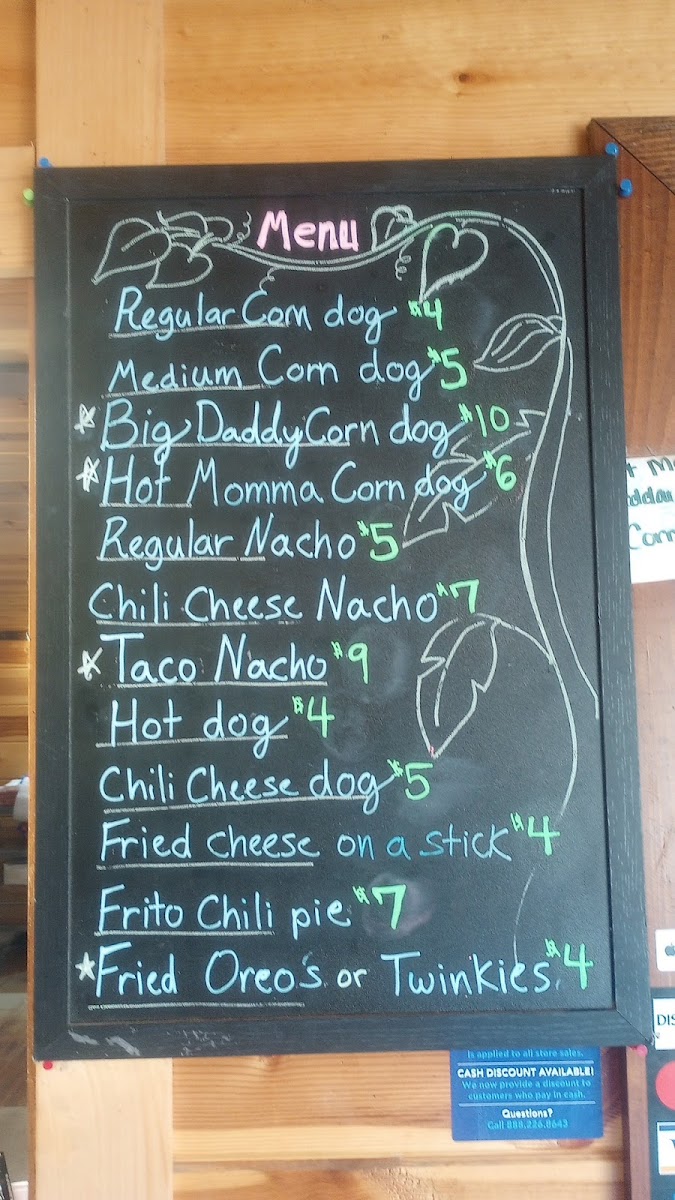 Menu
Regular Corn dog $4
Medium Corn dog $5
Big Daddy Corn dog $10
Hot Momma Corn dog $6
Regular Nacho $5
Chili Cheese Nacho $7
Taco Nacho $9
Hot dog $4
Chili Cheese dog $5
Fried cheese on a stick $4
Frito Chili pie $7
Fried Oreo's or Twinkies $4
is applied to all store sales.
CASH DISCOUNT AVAILABLE!
We now provide a discount to
customers who pay in cash.
Questions?
Call 888.226.8643
DIS